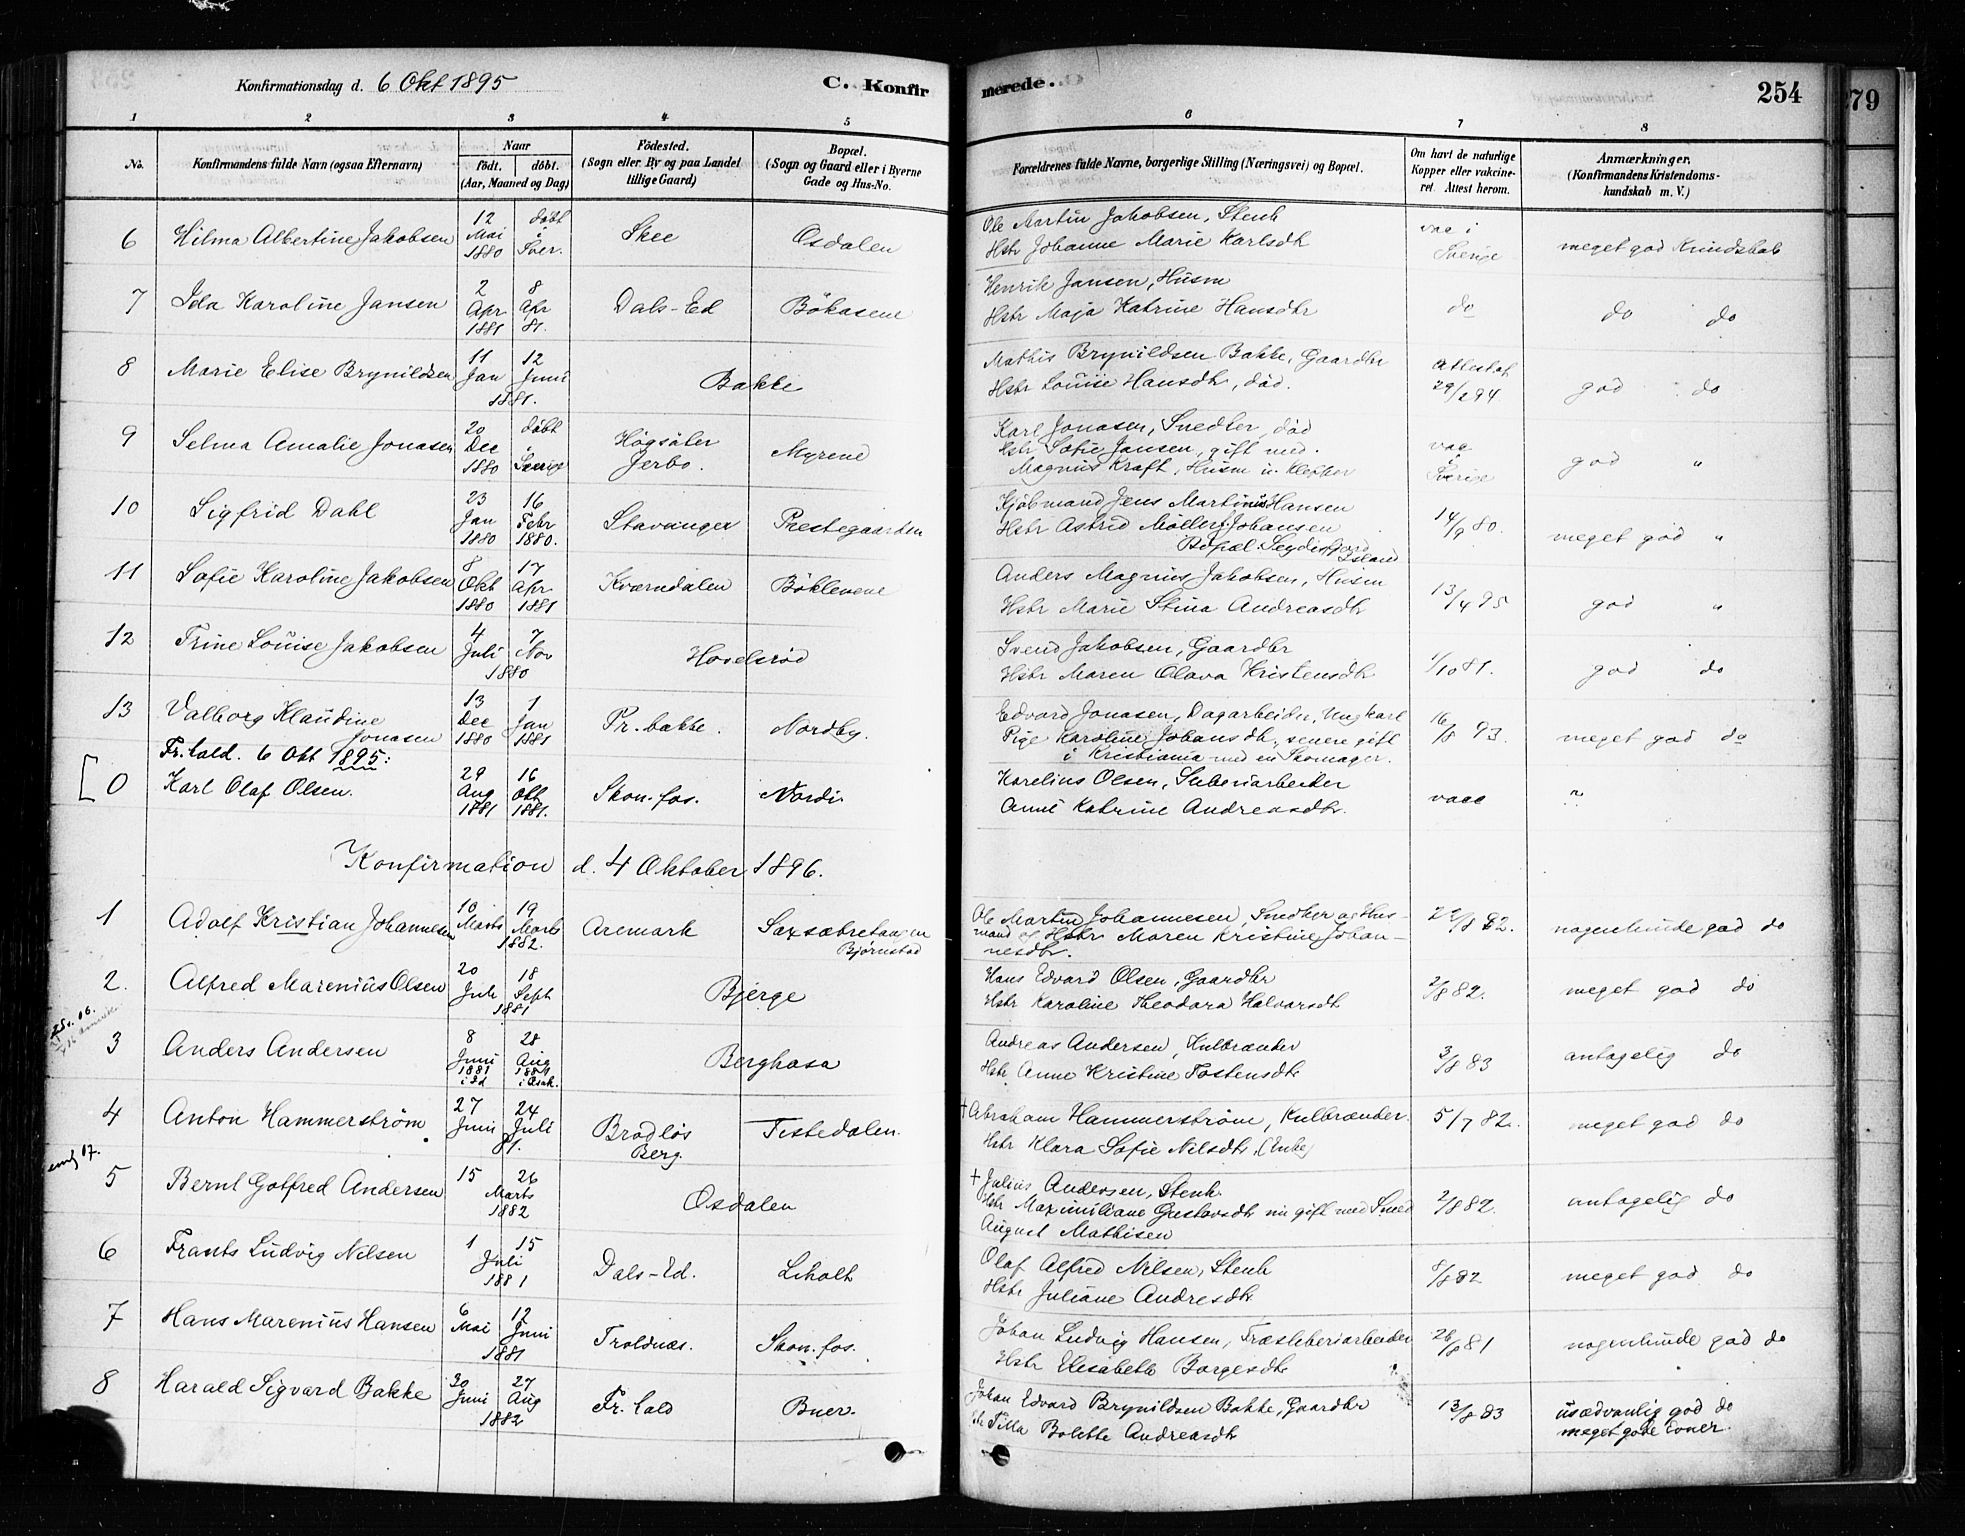 Konfirmationsdag d. 6 Okt 1895
C. Konfirmerede.
254
279
1 2 3 4 5 6 7 8
No.
Konfirmandens fulde Navn (ogsaa Efternavn)
Naar
födt. döbt.
(Aar, Maaned og Dag)
Födested.
(Sogn eller By og paa Landet tillige Gaard)
Bopæl.
(Sogn og Gaard eller i Byerne Gade og Hus-No.
Forældrenes fulde Navne, borgerlige Stilling (Næringsvei) og Bopæl.
Om havt de naturlige Kopper eller vakcineret. Attest herom.
Anmærkninger.
(Konfirmandens Kristendomskundskab m. V.)
6 Hilma Albertine Jakobsen 12 Mai 1880 döbt i Sver. Skee Osdalen Ole Martin Jakobsen, Stenh Hstr Johanne Marie Karlsdtr vac i Sverige meget god Kundskab
7 Ida Karoline Jansen 2 Apr 1881 8 Apr 81. Dals-Ed Bökasene Henrik Jansen, Husm Hstr Maja Katrine Hansdtr do do do
8 Marie Elise Brynildsen 11 Jan 12 Juni 1881. Bakke Mathis Brynildsen Bakke, Gaardbr Hstr Louise Hansdtr, död. Attestat 29/2 94 god do
9 Selma Amalie Jonasen 20 Dec 1880 döbt i Sverige Högsäter Jerbo. Myrene Karl Jonasen, Snedker, död Hstr Sofie Jansen, gift med. Magnus Kraft, Husm u. Klepper vac i Sverige god "
10 Sigfrid Dahl 23 Jan 1880 16 Febr 1880. Stavanger Prestegaarden Kjöbmand Jens Martinus Hansen Hstr Astrid Möller f. Johansen Bopæl: Seydisfjord Island 14/9 80. meget god "
11 Sofie Karoline Jakobsen 8 Okt 1880 17 Apr 1881 Kværndalen Böklevene Anders Magnus Jakobsen, Husm Hstr Marie Stina Andreasdtr 13/4 95 god "
12 Trine Louise Jakobsen 4 Juli 7 Nov 1880 Hovelsröd Svend Jakobsen, Gaardbr Hstr Maren Olava Kristensdtr 1/10 81. god do
13 Valborg Klaudine Jonasen 13 Dec 1880 1 Jan 1881 Pr. bakke. Nordby. Edvard Jonasen, Dagarbeider, Ungkarl Pige Karoline Johansdtr, senere gift i Kristiania med en Skomager. 16/8 93. meget god do
Fr. hald. 6 Okt 1895:
[0 Karl Olaf Olsen. 29 Aug 1881 16 Okt 1881. Skon. fos. Nordi. Karelius Olsen, Sliberiarbeider Anne Katrine Andreasdtr. vacc "
Konfirmation d. 4 Oktober 1896.
1 Adolf Kristian Johannesen 10 Marts 19 Marts 1882. Aremark Saxsæbretangen Bjørnstad Ole Martin Johannesen, Snedker og Husmand og Hstr Maren Kristine Johannesdtr. 22/8 82. nogenlunde god do
2. Alfred Marenius Olsen 20 Juli 18 Sept 1881 Bjerge Hans Edvard Olsen, Gaardbr Hstr Karoline Theodora Halvarsdtr 2/8 82. meget god do
3 Anders Andersen 8 Juni 1881 i Id 28 Aug 1881 i Asak. Berghasa Andreas Andersen, Kulbrænder Hstr Anne Kristine Tostensdtr 3/8 83 antagelig do
4 Anton Hammerström 27 Juni 24 Juli 81. Brödlös Berg. Tistedalen. † Abraham Hammerström, Kulbrænder. Hstr Klara Sofie Nilsdtr. (Enke) 5/7 82. meget god do
5 Bernt Gotfred Andersen 15 26 Marts 1882 Osdalen † Julius Andersen, Stenh. Hstr Maximiliane Gustavsdtr nu gift med Smed August Mathisen 2/8 82. antagelig do
6 Frants Ludvig Nilsen 1 15 Juli 1881 Dals-Ed. Liholt Olaf Alfred Nilsen, Stenh Hstr Juliane Andresdtr 8/8 82 meget god do
7 Hans Marenius Hansen 6 Mai 12 Juni 1881 Troldnæs. Skon. fos. Johan Ludvig Hansen, Træsliberiarbeider Hstr Elisabeth Borgesdtr 26/8 81 nogenlunde god do
8 Harald Sigvard Bakke 30 Juni 27 Aug 1882 Fr. hald Buer. Johan Edvard Brynildsen Bakke, Gaardbr Hstr Tilla Bolette Andreasdtr 13/8 83 usædvanlig god do meget gode Evner.